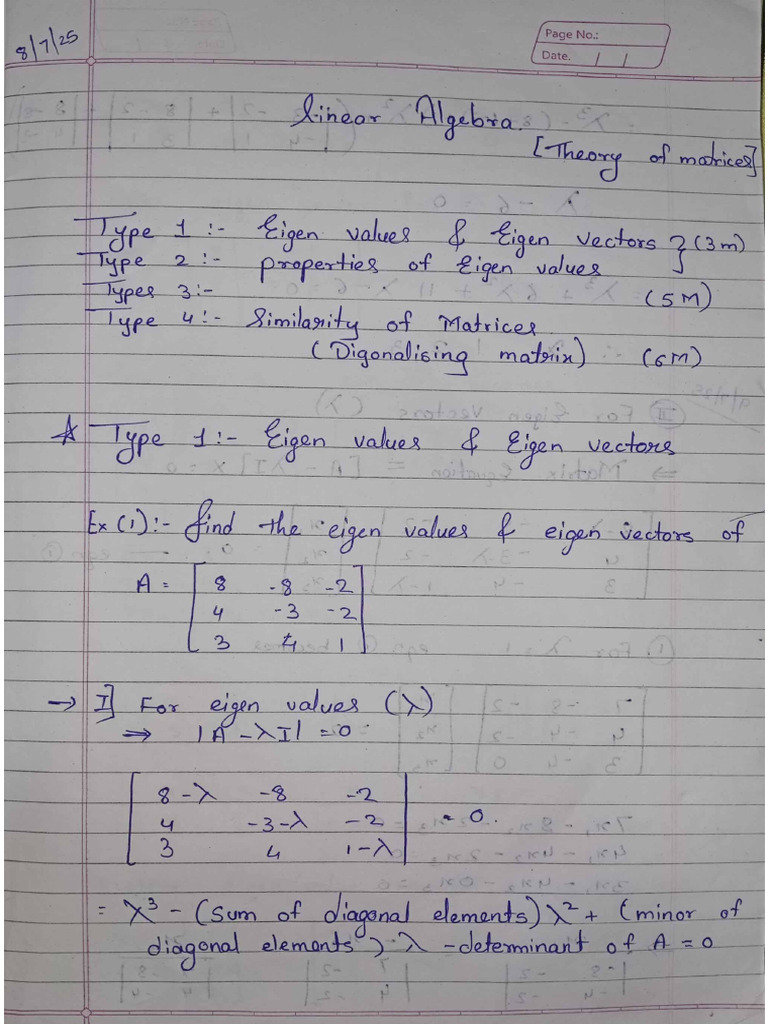 8/7/25
Page No.:
Date. / /
Linear Algebra.
[Theory of matrices]
Type 1 :- Eigen values & Eigen vectors } (3m)
Type 2 :- properties of Eigen values
Types 3:- (5M)
Type 4:- Similarity of Matrices
(Digonalising matrix) (6M)
☆ Type 1:- Eigen values & Eigen vectors
Ex (i):- find the eigen values & eigen vectors of
A = [ 8 -8 -2 ]
[ 4 -3 -2 ]
[ 3 4 1 ]
→ I] For eigen values (λ)
⇒ |A - λI| = 0
| 8-λ -8 -2 |
| 4 -3-λ -2 | = 0.
| 3 4 1-λ |
= λ³ - (sum of diagonal elements) λ² + (minor of
diagonal elements) λ - determinant of A = 0